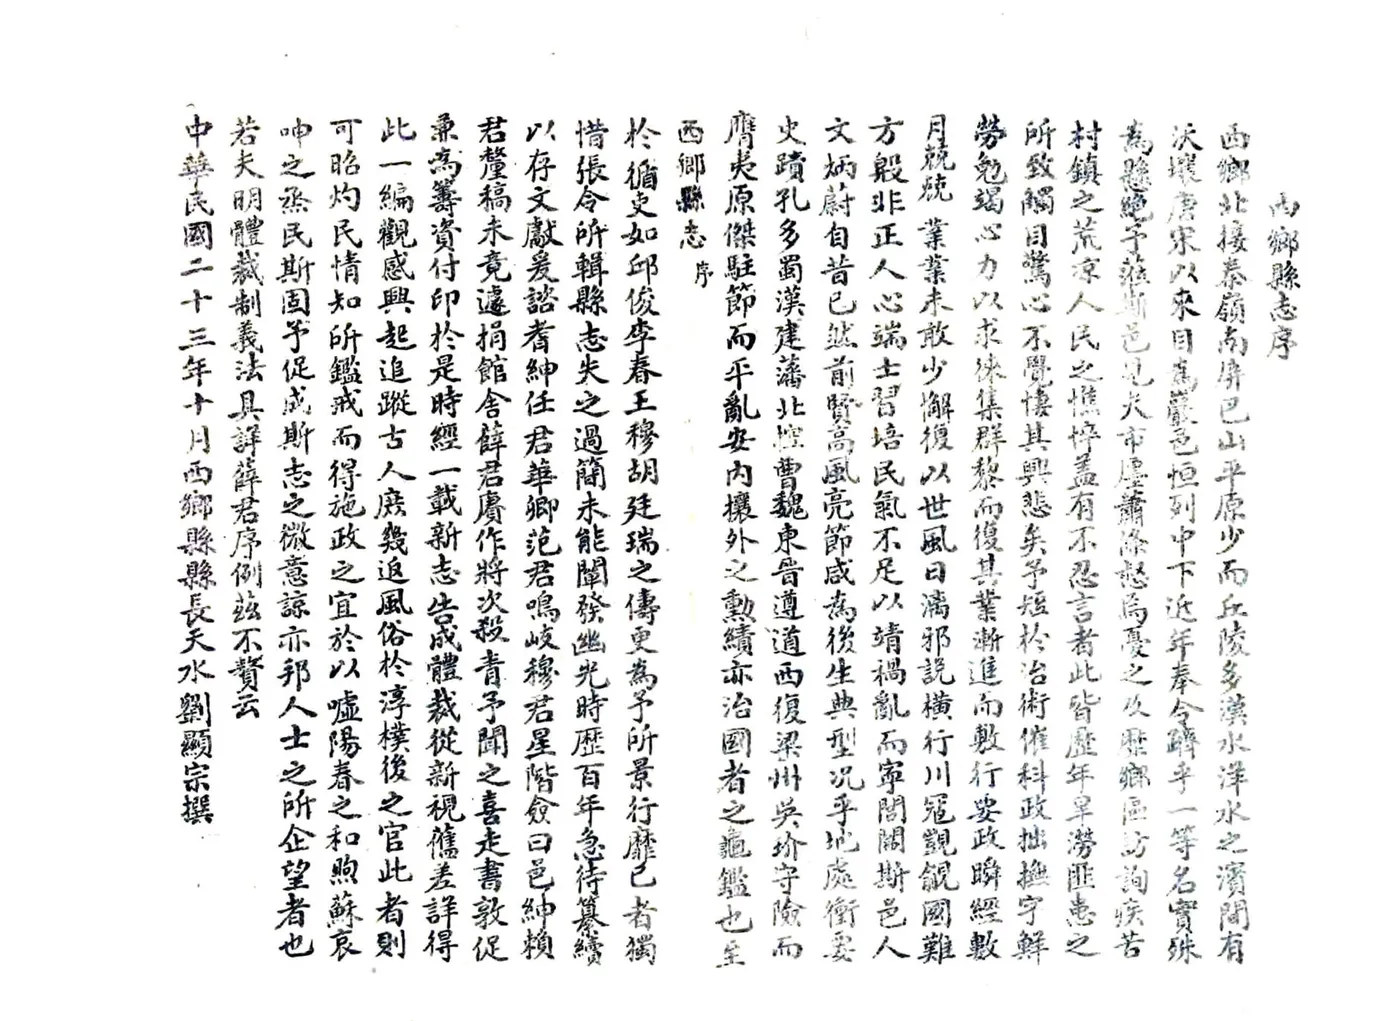 西鄉縣志序
西鄉北接秦嶺南屏巴山平原少而丘陵多漢水洋水之濱間有
沃壤唐宋以來目為巖邑恒列中下近年奉令躋乎一等名實殊
為懸絕予蒞斯邑見夫市廛蕭條怒焉憂之及歷鄉區訪詢疾苦
村鎮之荒凉人民之憔悴蓋有不忍言者此皆歷年旱澇匪患之
所致觸目驚心不覺悽其興悲矣予短於治術催科政拙撫字鮮
勞勉竭心力以求徠集群黎而復其業漸進而敷行安政瞬經數
月兢兢業業未敢少懈復以世風日漓邪說橫行川寇覬覦國難
方殷非正人心端士習培民氣不足以靖禍亂而寧閭閻斯邑人
文炳蔚自昔已然前賢高風亮節咸為後生典型况乎地處衝要
史蹟孔多蜀漢建藩北控曹魏東晉遵道西復梁州吳玠守險而
膺夷原傑駐節而平亂安內攘外之勳績亦治國者之龜鑑也至
西鄉縣志 序
於循吏如邱俊李春王穆胡廷瑞之儔更為予所景行靡已者獨
惜張令所輯縣志失之過簡未能闡發幽光時歷百年急待纂續
以存文獻爰諮耆紳任君華卿范君鳴岐穆君星階僉曰邑紳賴
君釐稿未竟遽捐館舍薛君賡作將次殺青予聞之喜走書敦促
兼為籌資付印於是時經一載新志告成體裁從新視舊差詳得
此一編觀感興起追蹤古人庶幾返風俗於淳樸後之官此者則
可昭灼民情知所鑑戒而得施政之宜於以噓陽春之和煦蘇哀
呻之烝民斯固予促成斯志之微意諒亦邦人士之所企望者也
若夫明體裁制義法具詳薛君序例茲不贅云
中華民國二十三年十月西鄉縣縣長天水劉顯宗撰